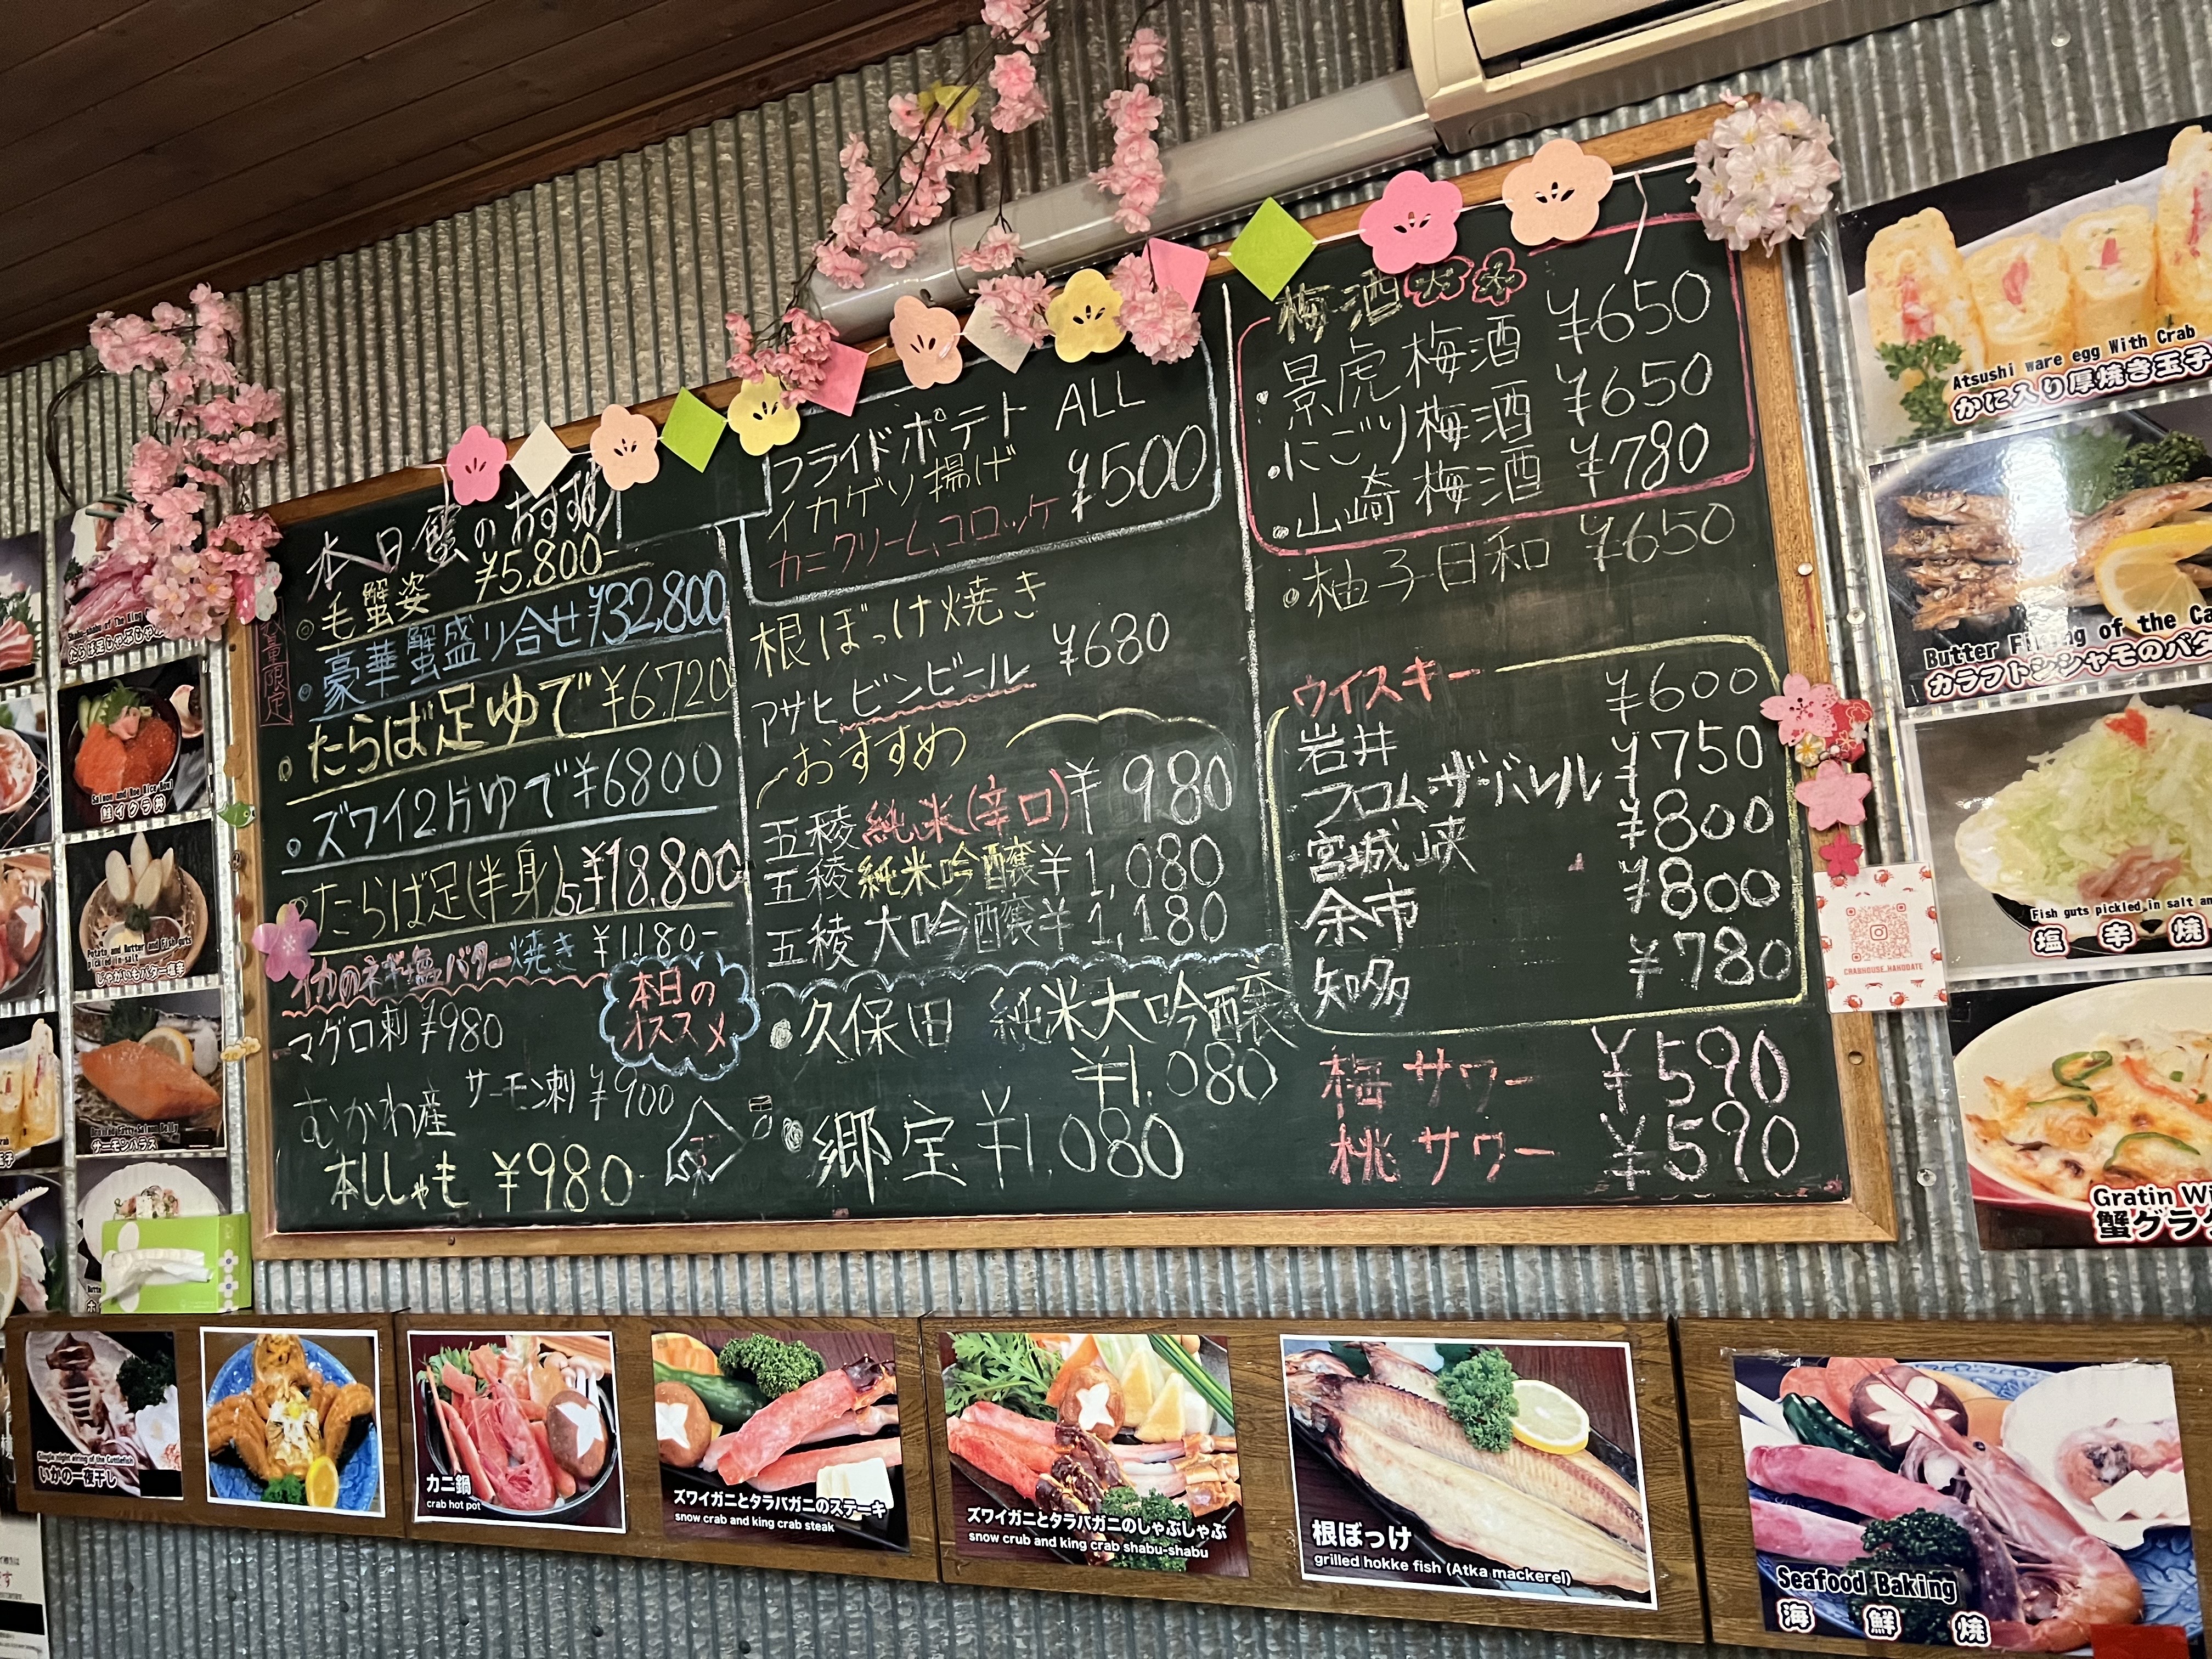 本日蟹のおすすめ
数量限定
◎毛蟹姿 ¥5,800-
◎豪華蟹盛り合せ ¥32,800
・たらば足ゆで ¥6,720
・ズワイ2片ゆで ¥6800
・たらば足(半身) ¥18,800
イカのネギ塩バター焼き ¥1,180-
マグロ刺 ¥980
本日の
オススメ
サーモン刺 ¥900
むかわ産
本ししゃも ¥980
フライドポテト ALL
イカゲソ揚げ ¥500
カニクリームコロッケ
根ぼっけ焼き
アサヒビンビール ¥680
おすすめ
五稜 純米(辛口) ¥980
五稜 純米吟醸 ¥1,080
五稜 大吟醸 ¥1,180
・久保田 純米大吟醸
¥1,080
・郷宝 ¥1,080
梅酒
・景虎梅酒 ¥650
・にごり梅酒 ¥650
・山崎梅酒 ¥780
・柚子日和 ¥650
ウイスキー
岩井 ¥600
フロム・ザ・バレル ¥750
宮城峡 ¥800
余市 ¥800
知多 ¥780
梅サワー ¥590
桃サワー ¥590
CRABHOUSE_HAKODATE
Atsushi ware egg With Crab
かに入り厚焼き玉子
Butter of the Ca
カラフトシシャモのバタ
Fish guts pickled in salt an
塩辛焼
Gratin Wi
蟹グラ
Shabu-shabu of The King
たらば足しゃぶしゃぶ
Salmon and Roe Rice Bowl
鮭イクラ丼
Potato and Butter and Fish guts
pickled in salt
じゃがいもバター塩辛
Broiled Fatty Salmon Belly
サーモンハラス
Single night airing of the Cuttlefish
いかの一夜干し
カニ鍋
crab hot pot
ズワイガニとタラバガニのステーキ
snow crab and king crab steak
ズワイガニとタラバガニのしゃぶしゃぶ
snow crub and king crab shabu-shabu
根ぼっけ
grilled hokke fish (Atka mackerel)
Seafood Baking
海鮮焼